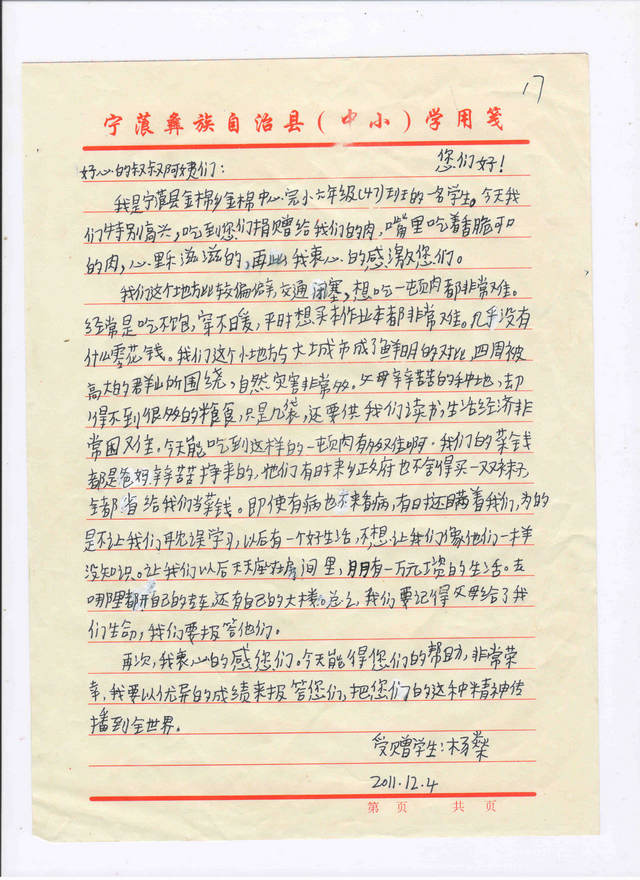 17
宁蒗彝族自治县(中小)学用笺
好心的叔叔阿姨们:
您们好!
我是宁蒗县金棉乡金棉中心完小六年级(47)班的一名学生。今天我
们特别高兴,吃到您们捐赠给我们的肉,嘴里吃着香脆可口
的肉,心里乐滋滋的,再此我衷心的感激您们。
我们这个地方比较偏僻,交通闭塞,想吃一顿肉都非常难。
经常是吃不饱,穿不暖,平时想买本作业本都非常难。几乎没有
什么零花钱。我们这个小地方与大城市成了鲜明的对比,四周被
高大的群山所围绕,自然灾害非常多。父母辛辛苦苦的种地,却
得不到很多的粮食,只是几袋,还要供我们读书,生活经济非
常困难。今天能吃到这样的一顿肉有多难啊。我们的菜钱
都是爸妈辛辛苦苦挣来的,他们有时来乡政府也不舍得买一双袜子,
全都省给我们当菜钱。即使有病也不来看病,有时还瞒着我们,为的
是不让我们耽误学习,以后有一个好生活,不想让我们像他们一样
没知识。让我们以后天天座在房间里,月月有一万元工资的生活。去
哪里都开自己的车,还有自己的大楼。总之,我们要记得父母给了我
们生命,我们要报答他们。
再次,我衷心的感您们。今天能得您们的帮助,非常荣
幸,我要以优异的成绩来报答您们,把您们的这种精神传
播到全世界。
受赠学生:杨燊
2011.12.4
第 页 共 页